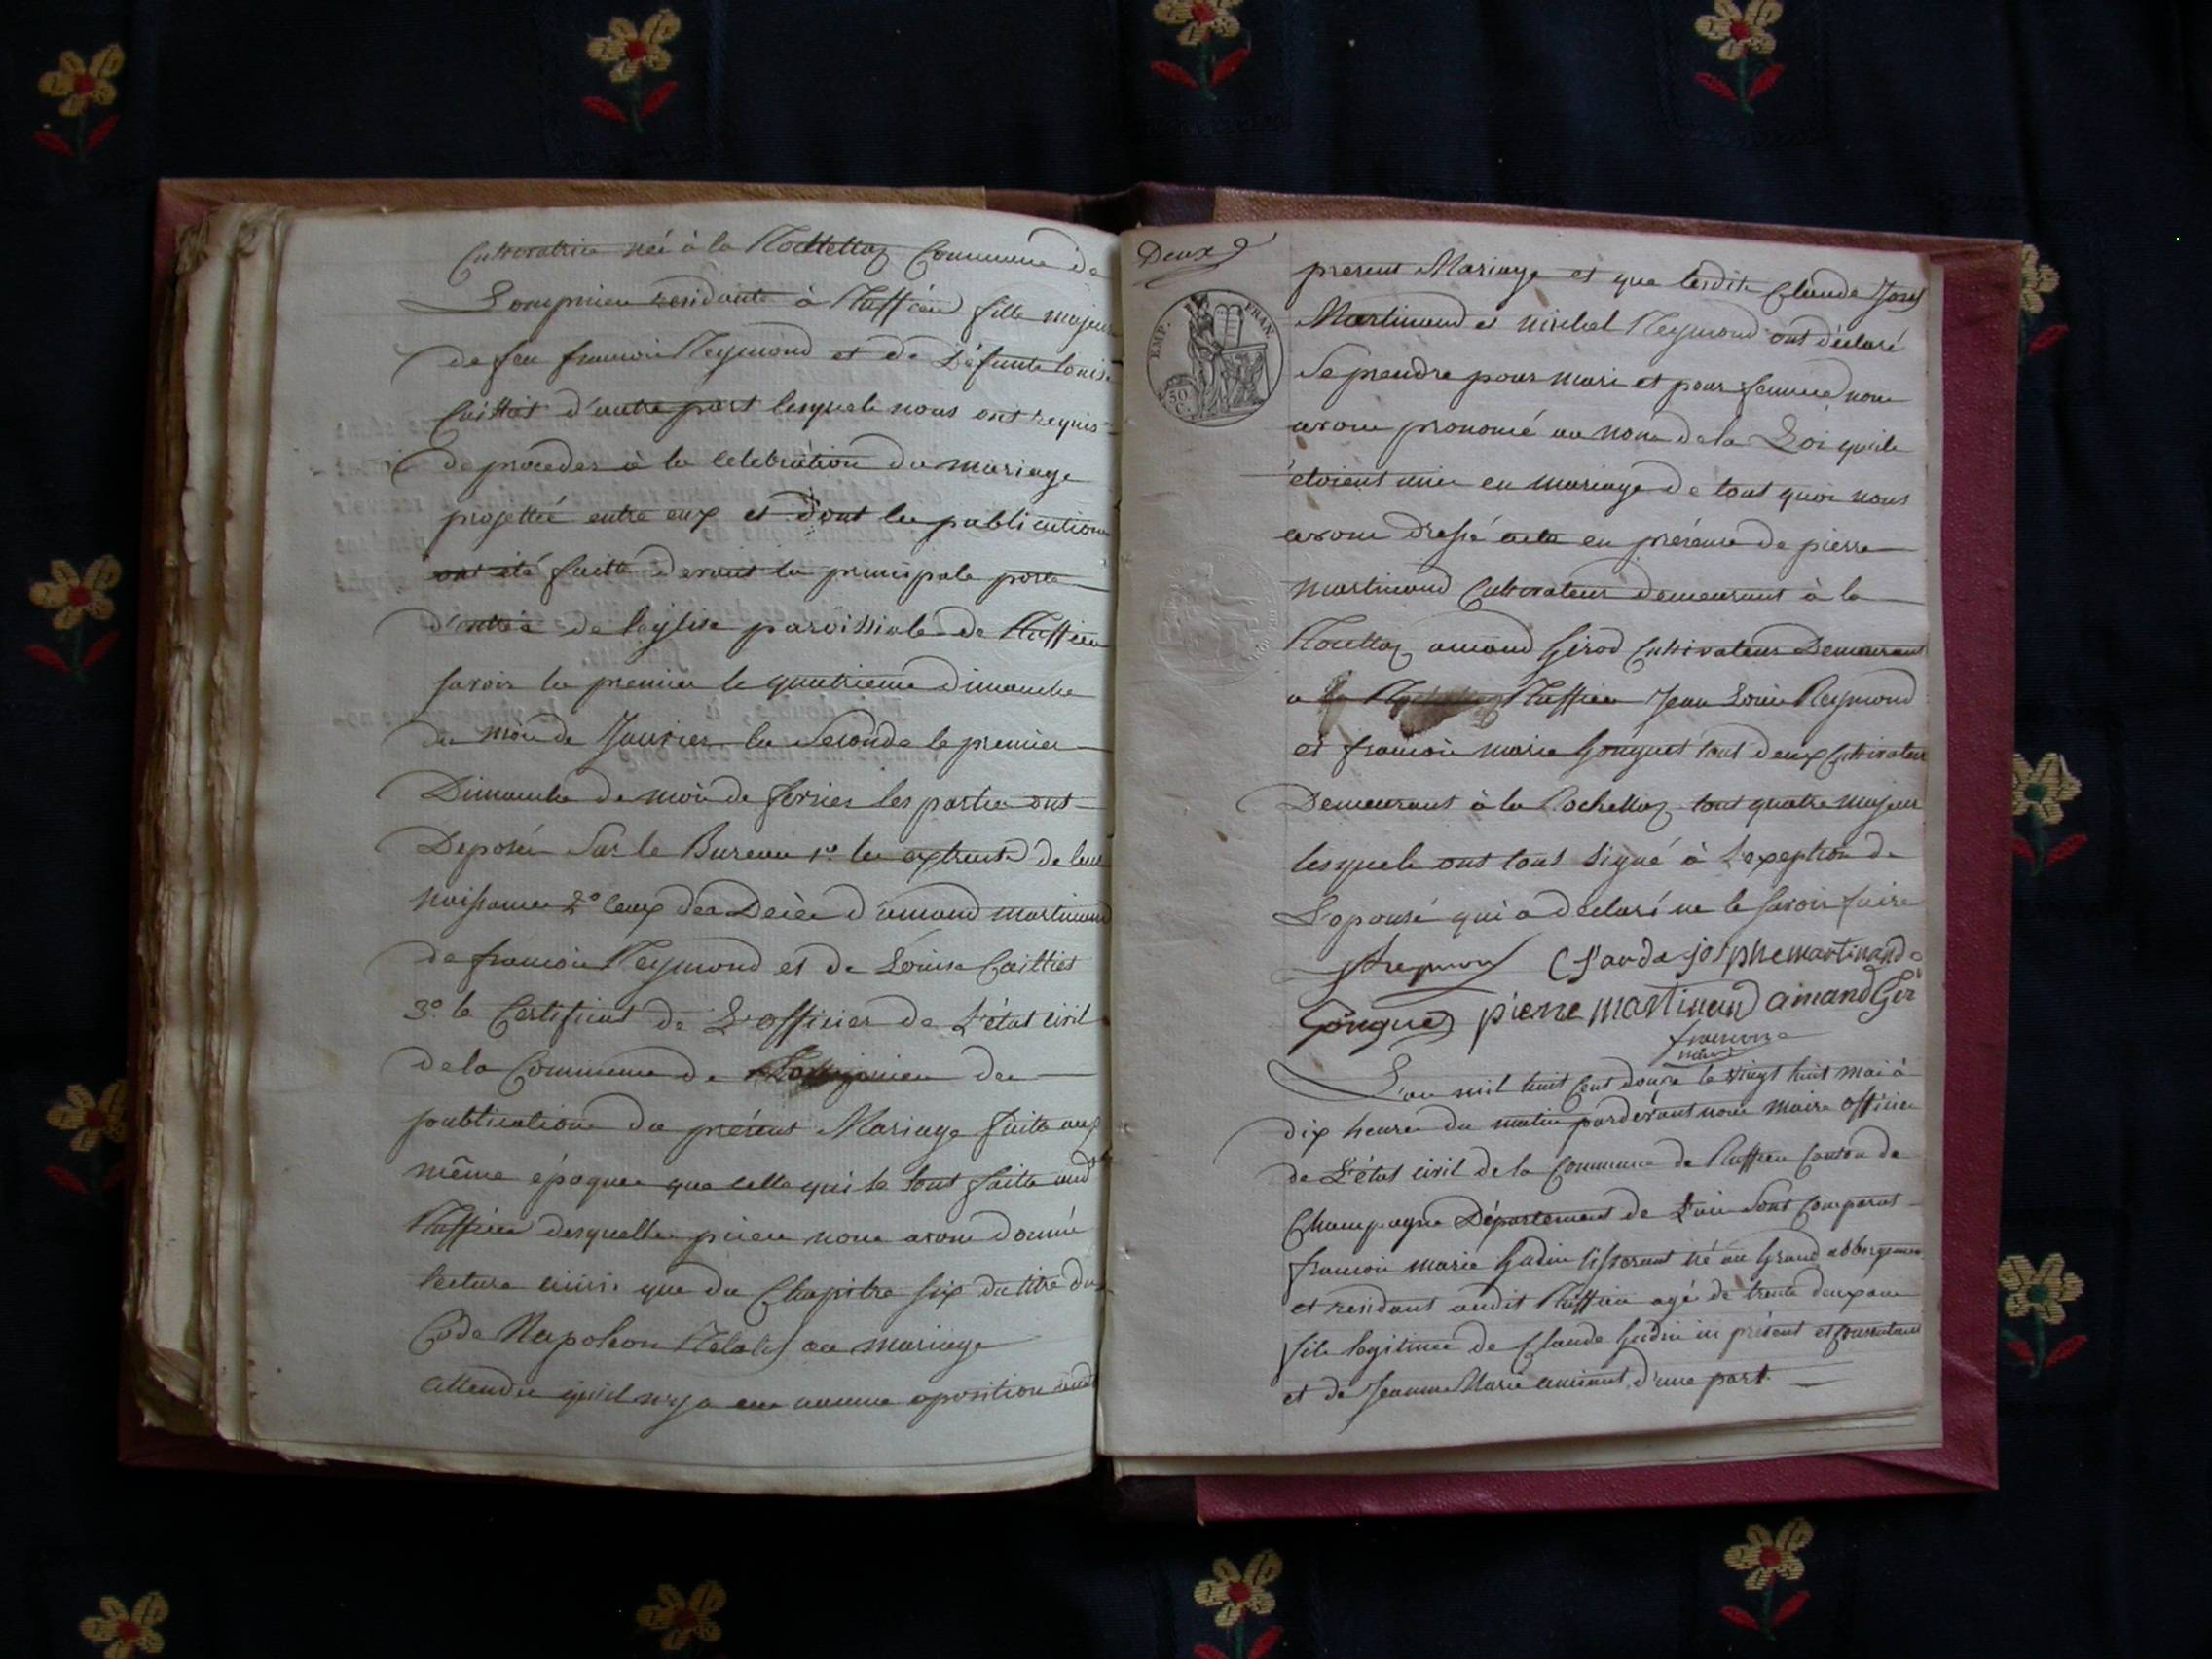 Cultivatrice née à la Rochettaz Commune de
Songnieu residante à Ruffieu fille majeure
de feu francois Reymond et de Défunte Louise
Caittiet d'autre part lesquels nous ont requis
de proceder à la celebration du mariage
projettée entre eux et dont les publications
ont été faitte devant la principale porte
d'entrée de leglise paroissiale de Ruffieu
savoir la premier le quatrieme dimanche
du mois de Janvier la seconde le premier
Dimanche de mois de fevrier les partie ont
Deposée Sur le Bureau 1° les extraits de leur
naissance 2° ceux des Décès d'amand martinand
de francois Reymond et de Louise Caittiet
3° le Certificat de L'officier de L'état civil
de la Commune de Songnieu des
publications du présent Mariage faitte aux
même époques que celle qui se sont faitte aud
Ruffieu desquelles pieces nous avons donné
lecture ainsi que du Chapitre six du titre du
Code Napoleon Relatif au mariage
attendu qu'il ny a eu aucune oposition aud
Deux
EMP. FRAN.
50 C.
present Mariage et que lesdits Claude Josep
Martinand et michel Reymond ont déclaré
Se prendre pour mari et pour femme nous
avons prononcé au nom de la Loi quils
étoient unis en mariage de tout quoi nous
avons dressé acte en présence de pierre
martinand Cultivateur demeurant à la
Rochettaz amand Girod Cultivateur Demeurant
a Ruffieu Jean Louis Reymond
et francois marie Gonguet tout deux Cultivateur
Demeurant à la Rochettaz tout quatre majeur
lesquels ont tous Signé à L'exeption de
L'epousé qui a déclaré ne le savoir faire
Claude josphe martinand
Gonguet pierre martinand amand Gir
francois
marie
L'an mil huit Cent douze le vingt huit mai à
dix heures du matin pardevant nous maire officier
de L'état civil de la Commune de Ruffieu Canton de
Champagne Département de L'ain Sont Comparus
francois marie Gudin tisserant né au Grand abbergement
et residant audit Ruffieu agé de trente deux ans
fils legitime de Claude Gudin ici présent et Consentant
et de Jeanne Marie d'une part.